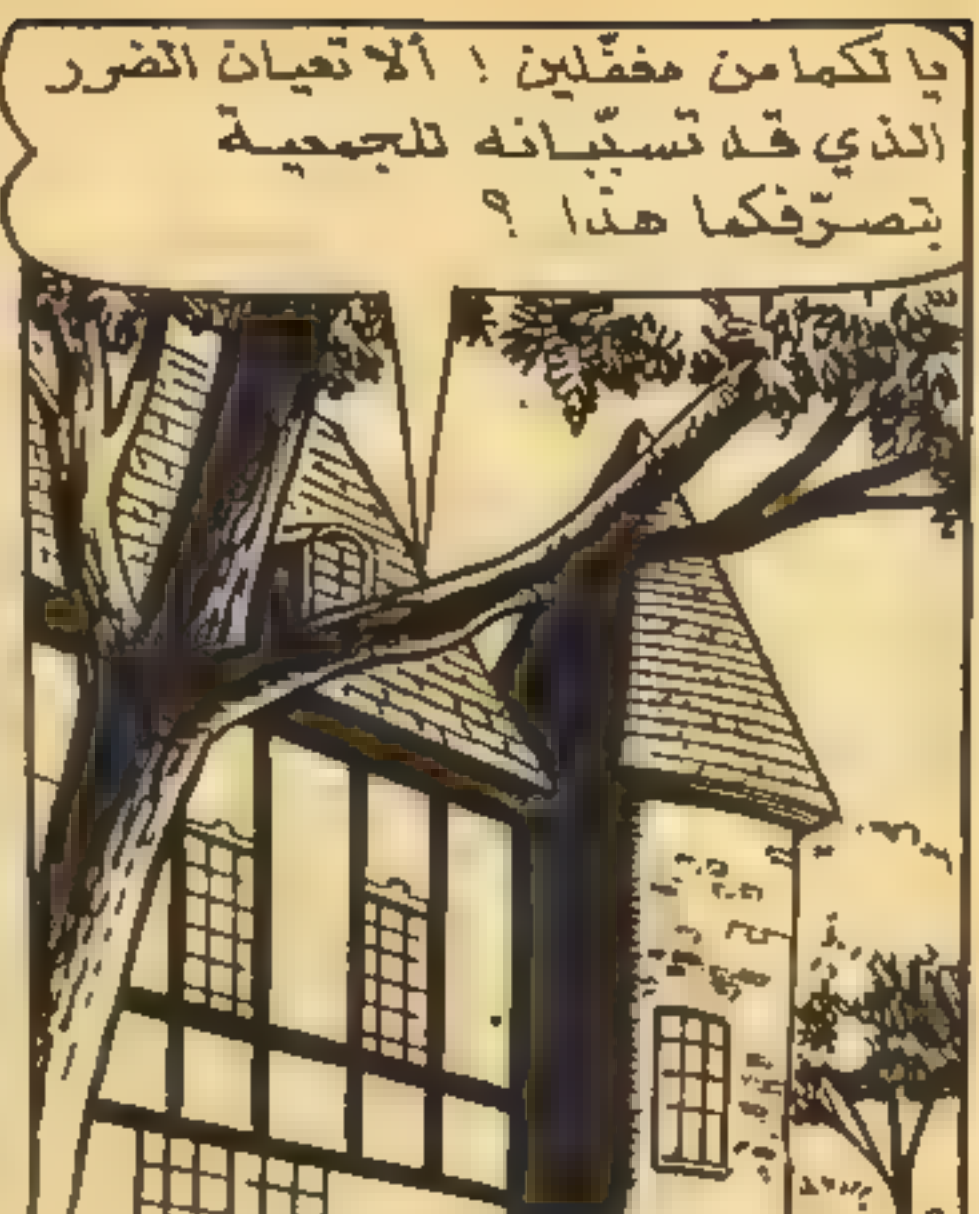 يا لكما من مغفّلين ! ألا تعيان الضرر
الذي قد تسبّبانه للجمعية
بتصرّفكما هذا ؟